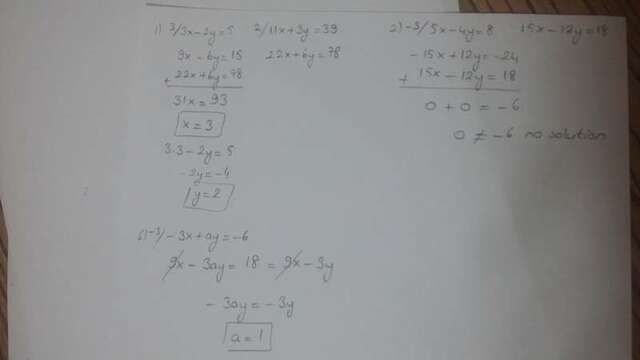 1) 3/3x-2y=5 2/11x+3y=39
9x-6y=15 22x+6y=78
+ 22x+6y=78
31x=93
x=3
3.3-2y=5
-2y=-4
y=2
2) -3/5x-4y=8 15x-12y=18
-15x+12y=-24
+ 15x-12y=18
0+0=-6
0≠-6 no solution
6) -3/-3x+ay=-6
9x-3ay=18=9x-3y
-3ay=-3y
a=1